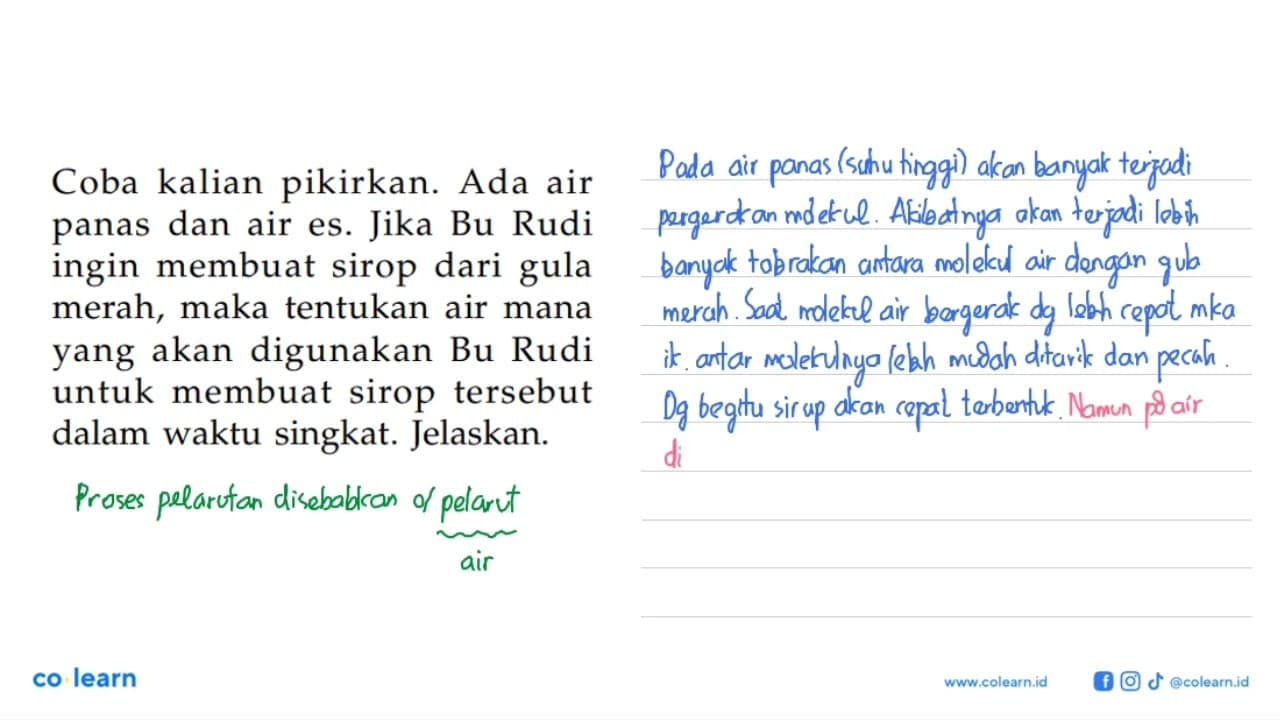 Coba kalian pikirkan. Ada air
panas dan air es. Jika Bu Rudi
ingin membuat sirop dari gula
merah, maka tentukan air mana
yang akan digunakan Bu Rudi
untuk membuat sirop tersebut
dalam waktu singkat. Jelaskan.
Proses pelarutan disebabkan o/ pelarut
air
Pada air panas (suhu tinggi) akan banyak terjadi
pergerakan molekul. Akibatnya akan terjadi lebih
banyak tobrakan antara molekul air dengan gula
merah. Saat molekul air bergerak dg lebih cepat mka
ik. antar molekulnya lebih mudah ditarik dan pecah.
Dg begitu sirup akan cepat terbentuk. Namun pd air
di
co learn
www.colearn.id
@colearn.id